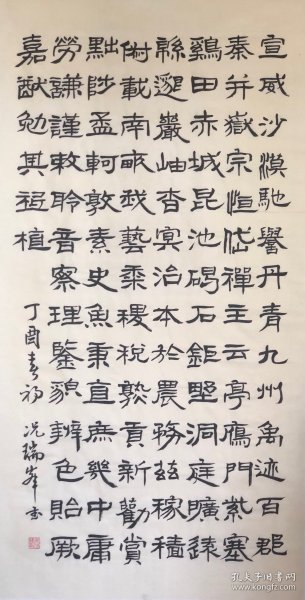 宣威沙漠馳譽丹青九州禹迹百郡
秦并嶽宗恒岱禪主云亭鴈門紫塞
鷄田赤城昆池碣石鉅野洞庭曠遠
緜邈巖岫杳冥治本於農務茲稼穡
俶載南畝我藝黍稷稅熟貢新勸賞
黜陟孟軻敦素史魚秉直庶幾中庸
勞謙謹敕聆音察理鑒貌辨色貽厥
嘉猷勉其祗植
丁酉春初 況瑞峰書
孔夫子旧书网